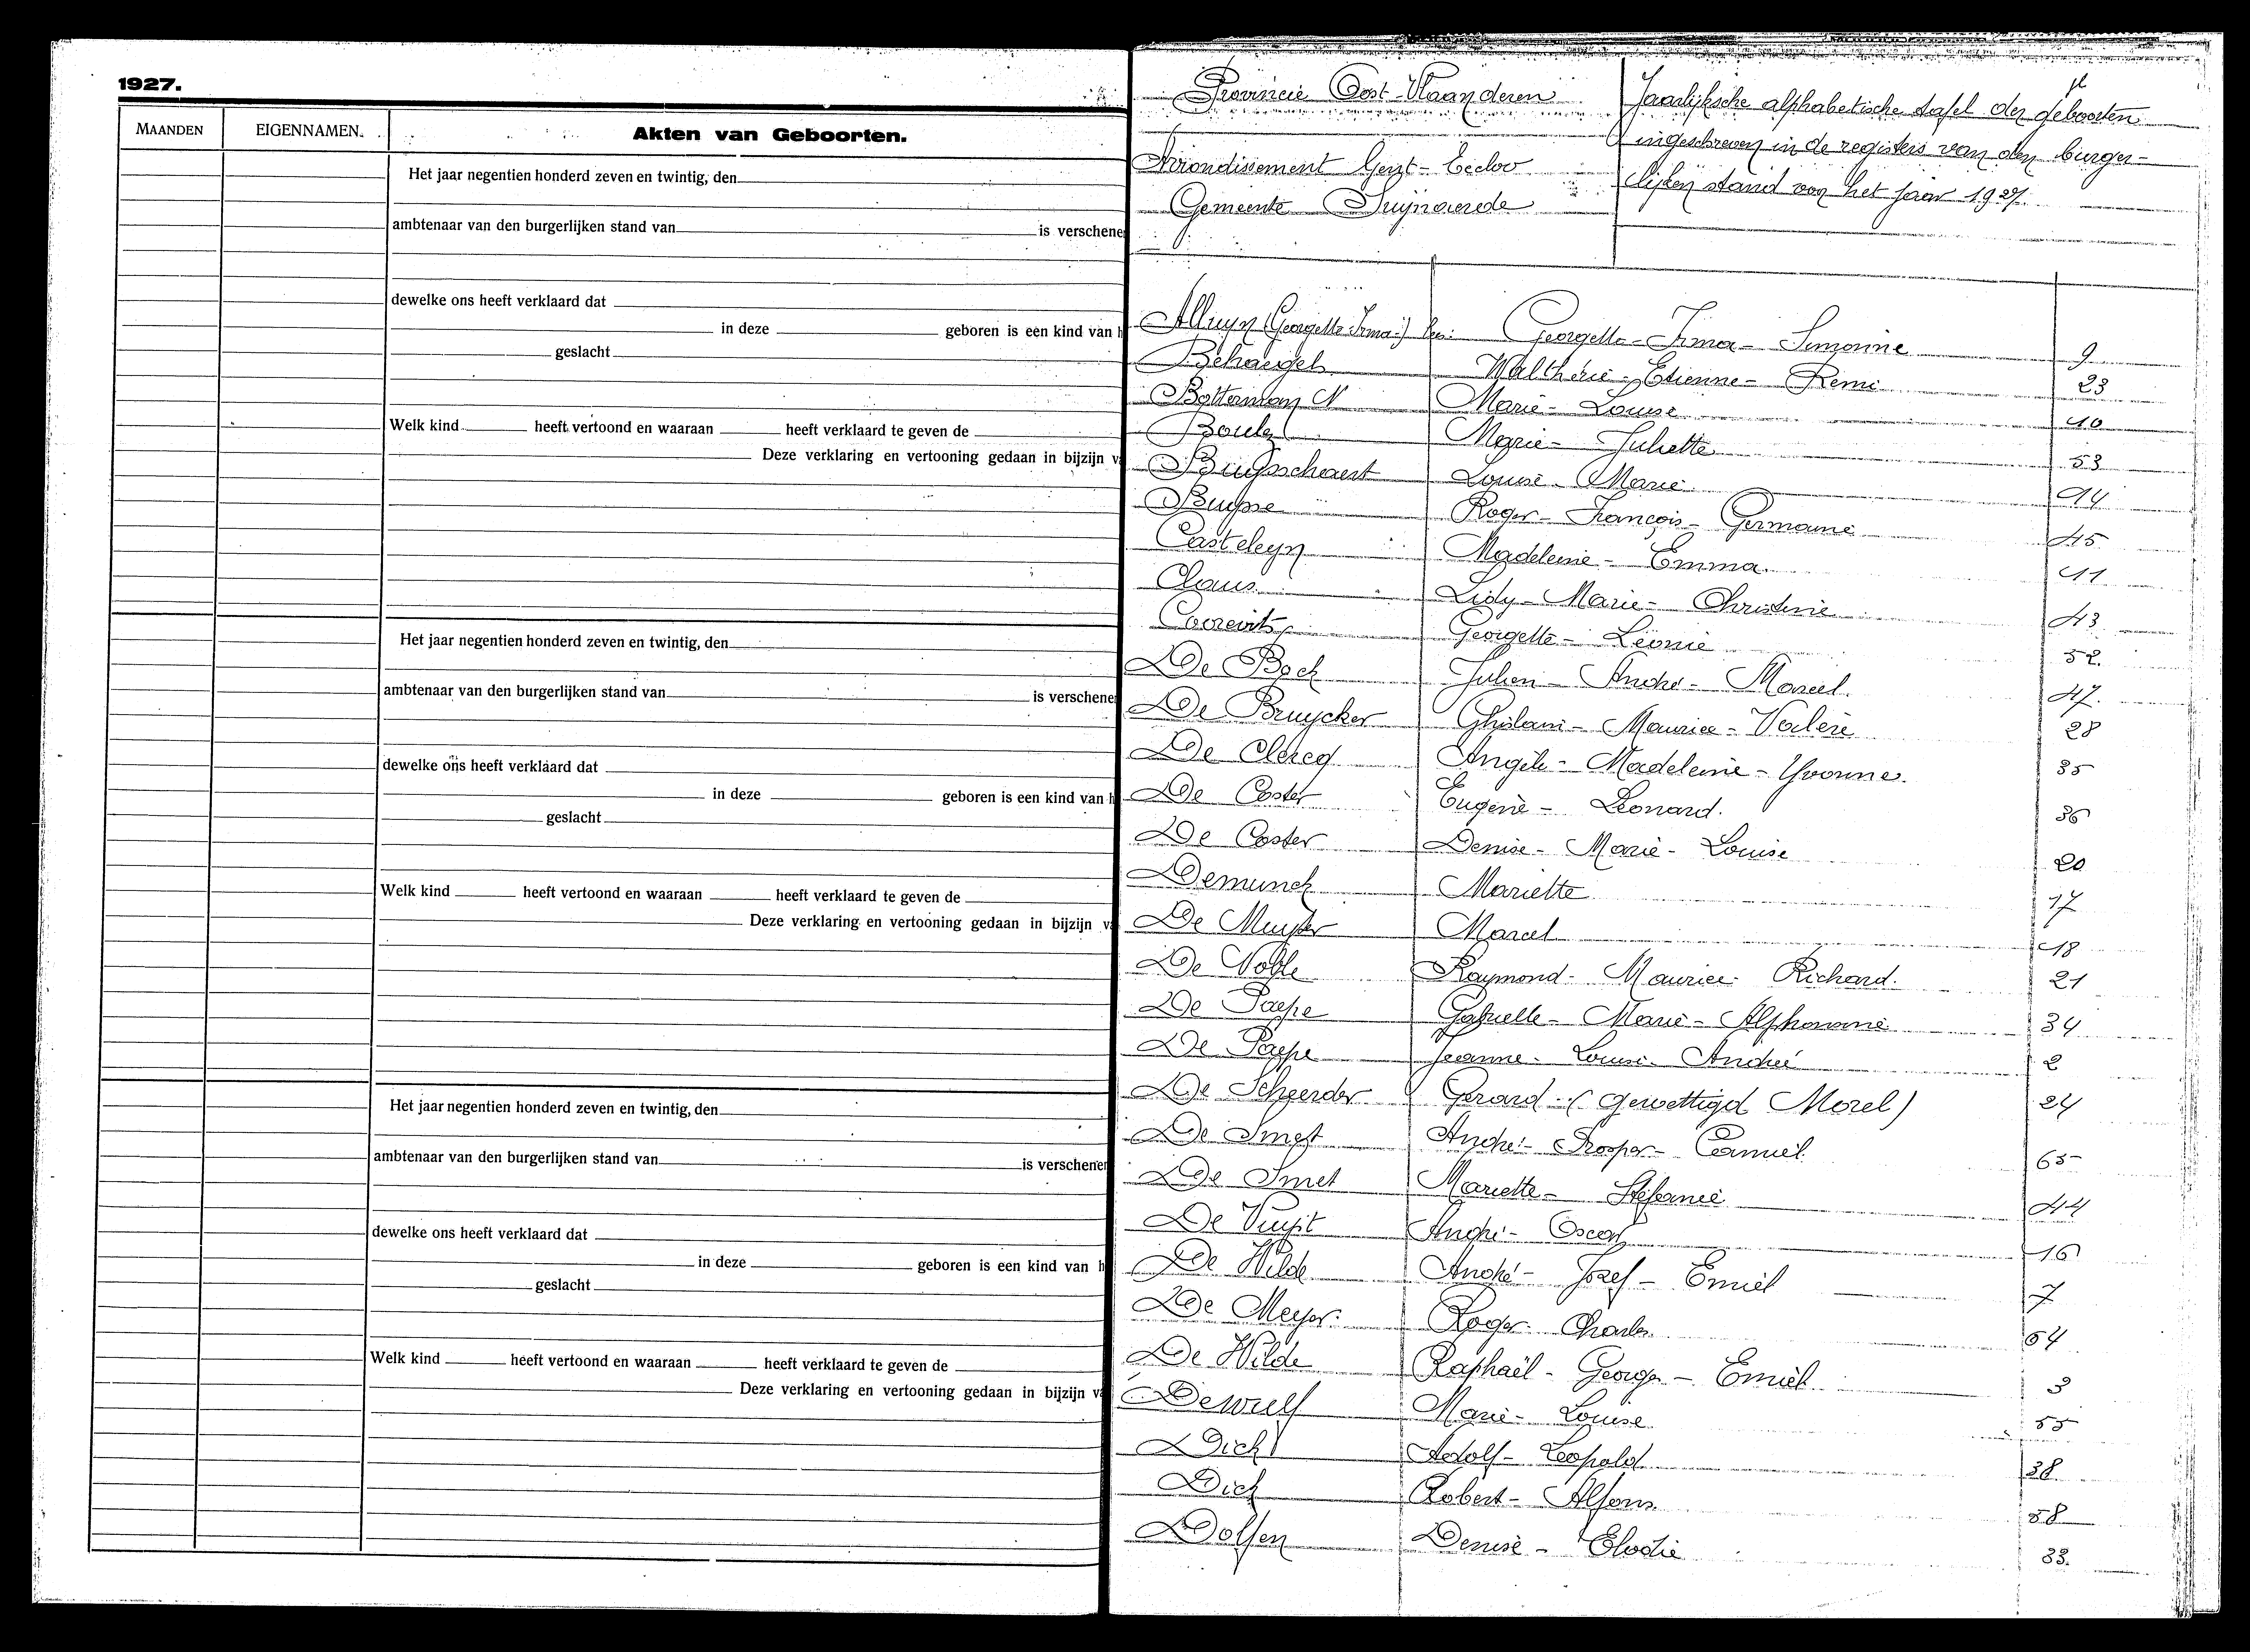 1927.
MAANDEN EIGENNAMEN. Akten van Geboorten.
Het jaar negentien honderd zeven en twintig, den
ambtenaar van den burgerlijken stand van is verschene
dewelke ons heeft verklaard dat
in deze geboren is een kind van h
geslacht
Welk kind heeft vertoond en waaraan heeft verklaard te geven de
Deze verklaring en vertooning gedaan in bijzijn v
Het jaar negentien honderd zeven en twintig, den
ambtenaar van den burgerlijken stand van is verschene
dewelke ons heeft verklaard dat
in deze geboren is een kind van h
geslacht
Welk kind heeft vertoond en waaraan heeft verklaard te geven de
Deze verklaring en vertooning gedaan in bijzijn v
Het jaar negentien honderd zeven en twintig, den
ambtenaar van den burgerlijken stand van is verschene
dewelke ons heeft verklaard dat
in deze geboren is een kind van h
geslacht
Welk kind heeft vertoond en waaraan heeft verklaard te geven de
Deze verklaring en vertooning gedaan in bijzijn v
Provincie Oost-Vlaanderen
Arrondissement Gent-Eecloo
Gemeente
Jaarlijksche alphabetische tafel der geboorten
ingeschreven in de registers van den burger-
lijken stand van het jaar 1927.
Alluyn (Georgette Irma) Georgette-Irma-Simonne 9
Behaegel Walthère-Etienne-Remi 23
Botterman Marie-Louise 10
Boule Marie-Juliette 53
Buysschaert Louise-Marie 14
Buysse Roger-François-Germaine 45
Casteleyn Madeleine-Emma. 11
Claus Lidy-Marie-Christine 43
Georgette-Léonie 52.
De Bock Julien-André-Marcel. 47.
De Bruycker Ghislain-Maurice-Valère 28
De Clercq Angèle-Madeleine-Yvonne. 35
De Coster Eugène-Leonard. 36
De Coster Denise-Marie-Louise 20
Demunck Mariette 17
De Muyter Marcel 18
De Noble Raymond-Maurice-Richard. 21
De Paepe Gabrielle-Marie-Alphonsine 34
De Paepe Jeanne-Louise-André 2
De Scheerder Gerard-(gewettigd Morel) 24
De Smet André-Prosper-Camiel 65
De Smet Mariette-Stefanie 44
De Vuyst André-Oscar 16
De Wilde André-Jozef-Emiel 7
De Meyer. Roger-Charles 54
De Wilde Raphaël-George-Emiel 3
Dewulf Marie-Louise 55
Dick Adolf-Leopold 38
Dick Robert-Alfons. 58
Dolfen Denise-Elodie 33.